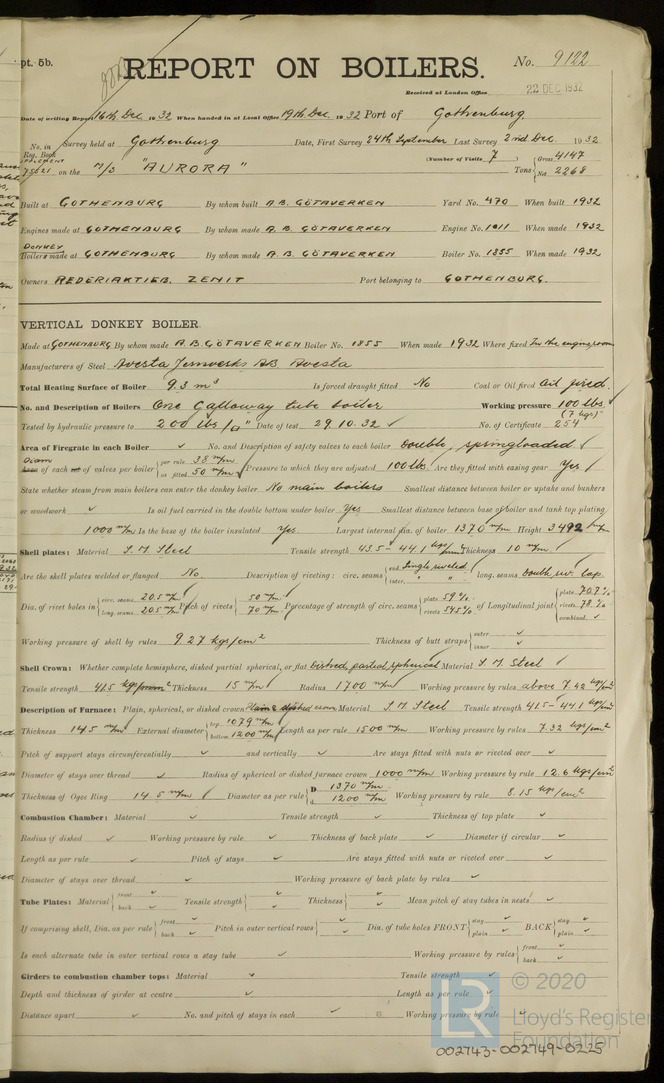 pt. 5b.
REPORT ON BOILERS.
No. 9122
Received at London Office
22 DEC 1932
Date of writing Report 16th Dec. 1932 When handed in at Local Office 19th Dec. 1932 Port of Gothenburg
No. in Reg. Book Survey held at Gothenburg Date, First Survey 24th September Last Survey 2nd Dec. 1932
(Number of Visits 7 ) Gross 4147
75621 on the M/S "AURORA" Tons Net 2268
Built at GOTHENBURG By whom built A.B. GÖTAVERKEN Yard No. 470 When built 1932
Engines made at GOTHENBURG By whom made A.B. GÖTAVERKEN Engine No. 1011 When made 1932
DONKEY
Boilers made at GOTHENBURG By whom made A.B. GÖTAVERKEN Boiler No. 1855 When made 1932
Owners REDERIAKTIEB. ZENIT Port belonging to GOTHENBURG.
VERTICAL DONKEY BOILER.
Made at GOTHENBURG By whom made A.B. GÖTAVERKEN Boiler No. 1855 When made 1932 Where fixed In the engineroom
Manufacturers of Steel Avesta Jernverks AB Avesta
Total Heating Surface of Boiler 93 m² Is forced draught fitted No Coal or Oil fired Oil fired.
No. and Description of Boilers One Galloway tube boiler Working pressure 100 lbs.
(7 kgs)
Tested by hydraulic pressure to 200 lbs/□" Date of test 29.10.32 ✓ No. of Certificate 254
Area of Firegrate in each Boiler ✓ No. and Description of safety valves to each boiler Double, springloaded.
Diam of each set of valves per boiler per rule 38 m/m as fitted 50 m/m Pressure to which they are adjusted 100 lbs. Are they fitted with easing gear Yes
State whether steam from main boilers can enter the donkey boiler No main boilers Smallest distance between boiler or uptake and bunkers
or woodwork ✓ Is oil fuel carried in the double bottom under boiler Yes Smallest distance between base of boiler and tank top plating
1000 m/m Is the base of the boiler insulated Yes. Largest internal dia. of boiler 1370 m/m Height 3492 m/m
Shell plates: Material S.M. Steel Tensile strength 43.5 - 44.1 kgs/mm² Thickness 10 m/m
Are the shell plates welded or flanged No. Description of riveting: circ. seams end Single riveted inter. " " long. seams double riv. lap.
Dia. of rivet holes in circ. seams 20.5 m/m long. seams 20.5 m/m Pitch of rivets 50 m/m 70 m/m Percentage of strength of circ. seams plate 59% rivets 54.5% of Longitudinal joint plate 70.7% rivets 78.% combined ✓
Working pressure of shell by rules 9.27 kgs/cm² Thickness of butt straps outer ✓ inner ✓
Shell Crown: Whether complete hemisphere, dished partial spherical, or flat Dished, partial, spherical Material S.M. Steel
Tensile strength 41.5 kgs/mm² Thickness 15 m/m Radius 1700 m/m Working pressure by rules above 7.42 kgs/cm²
Description of Furnace: Plain, spherical, or dished crown Plain & dished crown Material S.M. Steel Tensile strength 41.5 - 44.1 kgs/mm²
Thickness 14.5 m/m External diameter top 1079 m/m bottom 1200 m/m Length as per rule 1500 m/m Working pressure by rules 7.32 kgs/cm²
Pitch of support stays circumferentially ✓ and vertically ✓ Are stays fitted with nuts or riveted over ✓
Diameter of stays over thread ✓ Radius of spherical or dished furnace crown 1000 m/m Working pressure by rule 12.6 kgs/cm²
Thickness of Ogee Ring 14.5 m/m Diameter as per rule D 1370 m/m d 1200 m/m Working pressure by rule 8.15 kgs/cm²
Combustion Chamber: Material ✓ Tensile strength ✓ Thickness of top plate ✓
Radius if dished ✓ Working pressure by rule ✓ Thickness of back plate ✓ Diameter if circular ✓
Length as per rule ✓ Pitch of stays ✓ Are stays fitted with nuts or riveted over ✓
Diameter of stays over thread ✓ Working pressure of back plate by rules ✓
Tube Plates: Material front ✓ back ✓ Tensile strength ✓ Thickness ✓ Mean pitch of stay tubes in nests ✓
If comprising shell, Dia. as per rule front ✓ back ✓ Pitch in outer vertical rows ✓ Dia. of tube holes FRONT stay ✓ plain ✓ BACK stay ✓ plain ✓
Is each alternate tube in outer vertical rows a stay tube ✓ Working pressure by rules front ✓ back ✓
Girders to combustion chamber tops: Material ✓ Tensile strength ✓
Depth and thickness of girder at centre ✓ Length as per rule ✓
Distance apart ✓ No. and pitch of stays in each ✓ Working pressure by rule ✓
© 2020
LR
Lloyd's Register
Foundation
002743-002749-0225